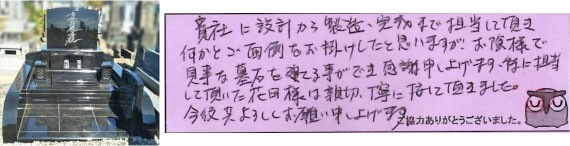 貴社に設計から製造、完成まで担当して頂き
何かとご面倒をお掛けしたと思いますが、お陰様で
見事な墓石を建てる事ができ感謝申し上げます、特に担当
して頂いた花田様は親切、丁寧に接して頂きました。
今後共よろしくお願い申し上げます
協力ありがとうございました。